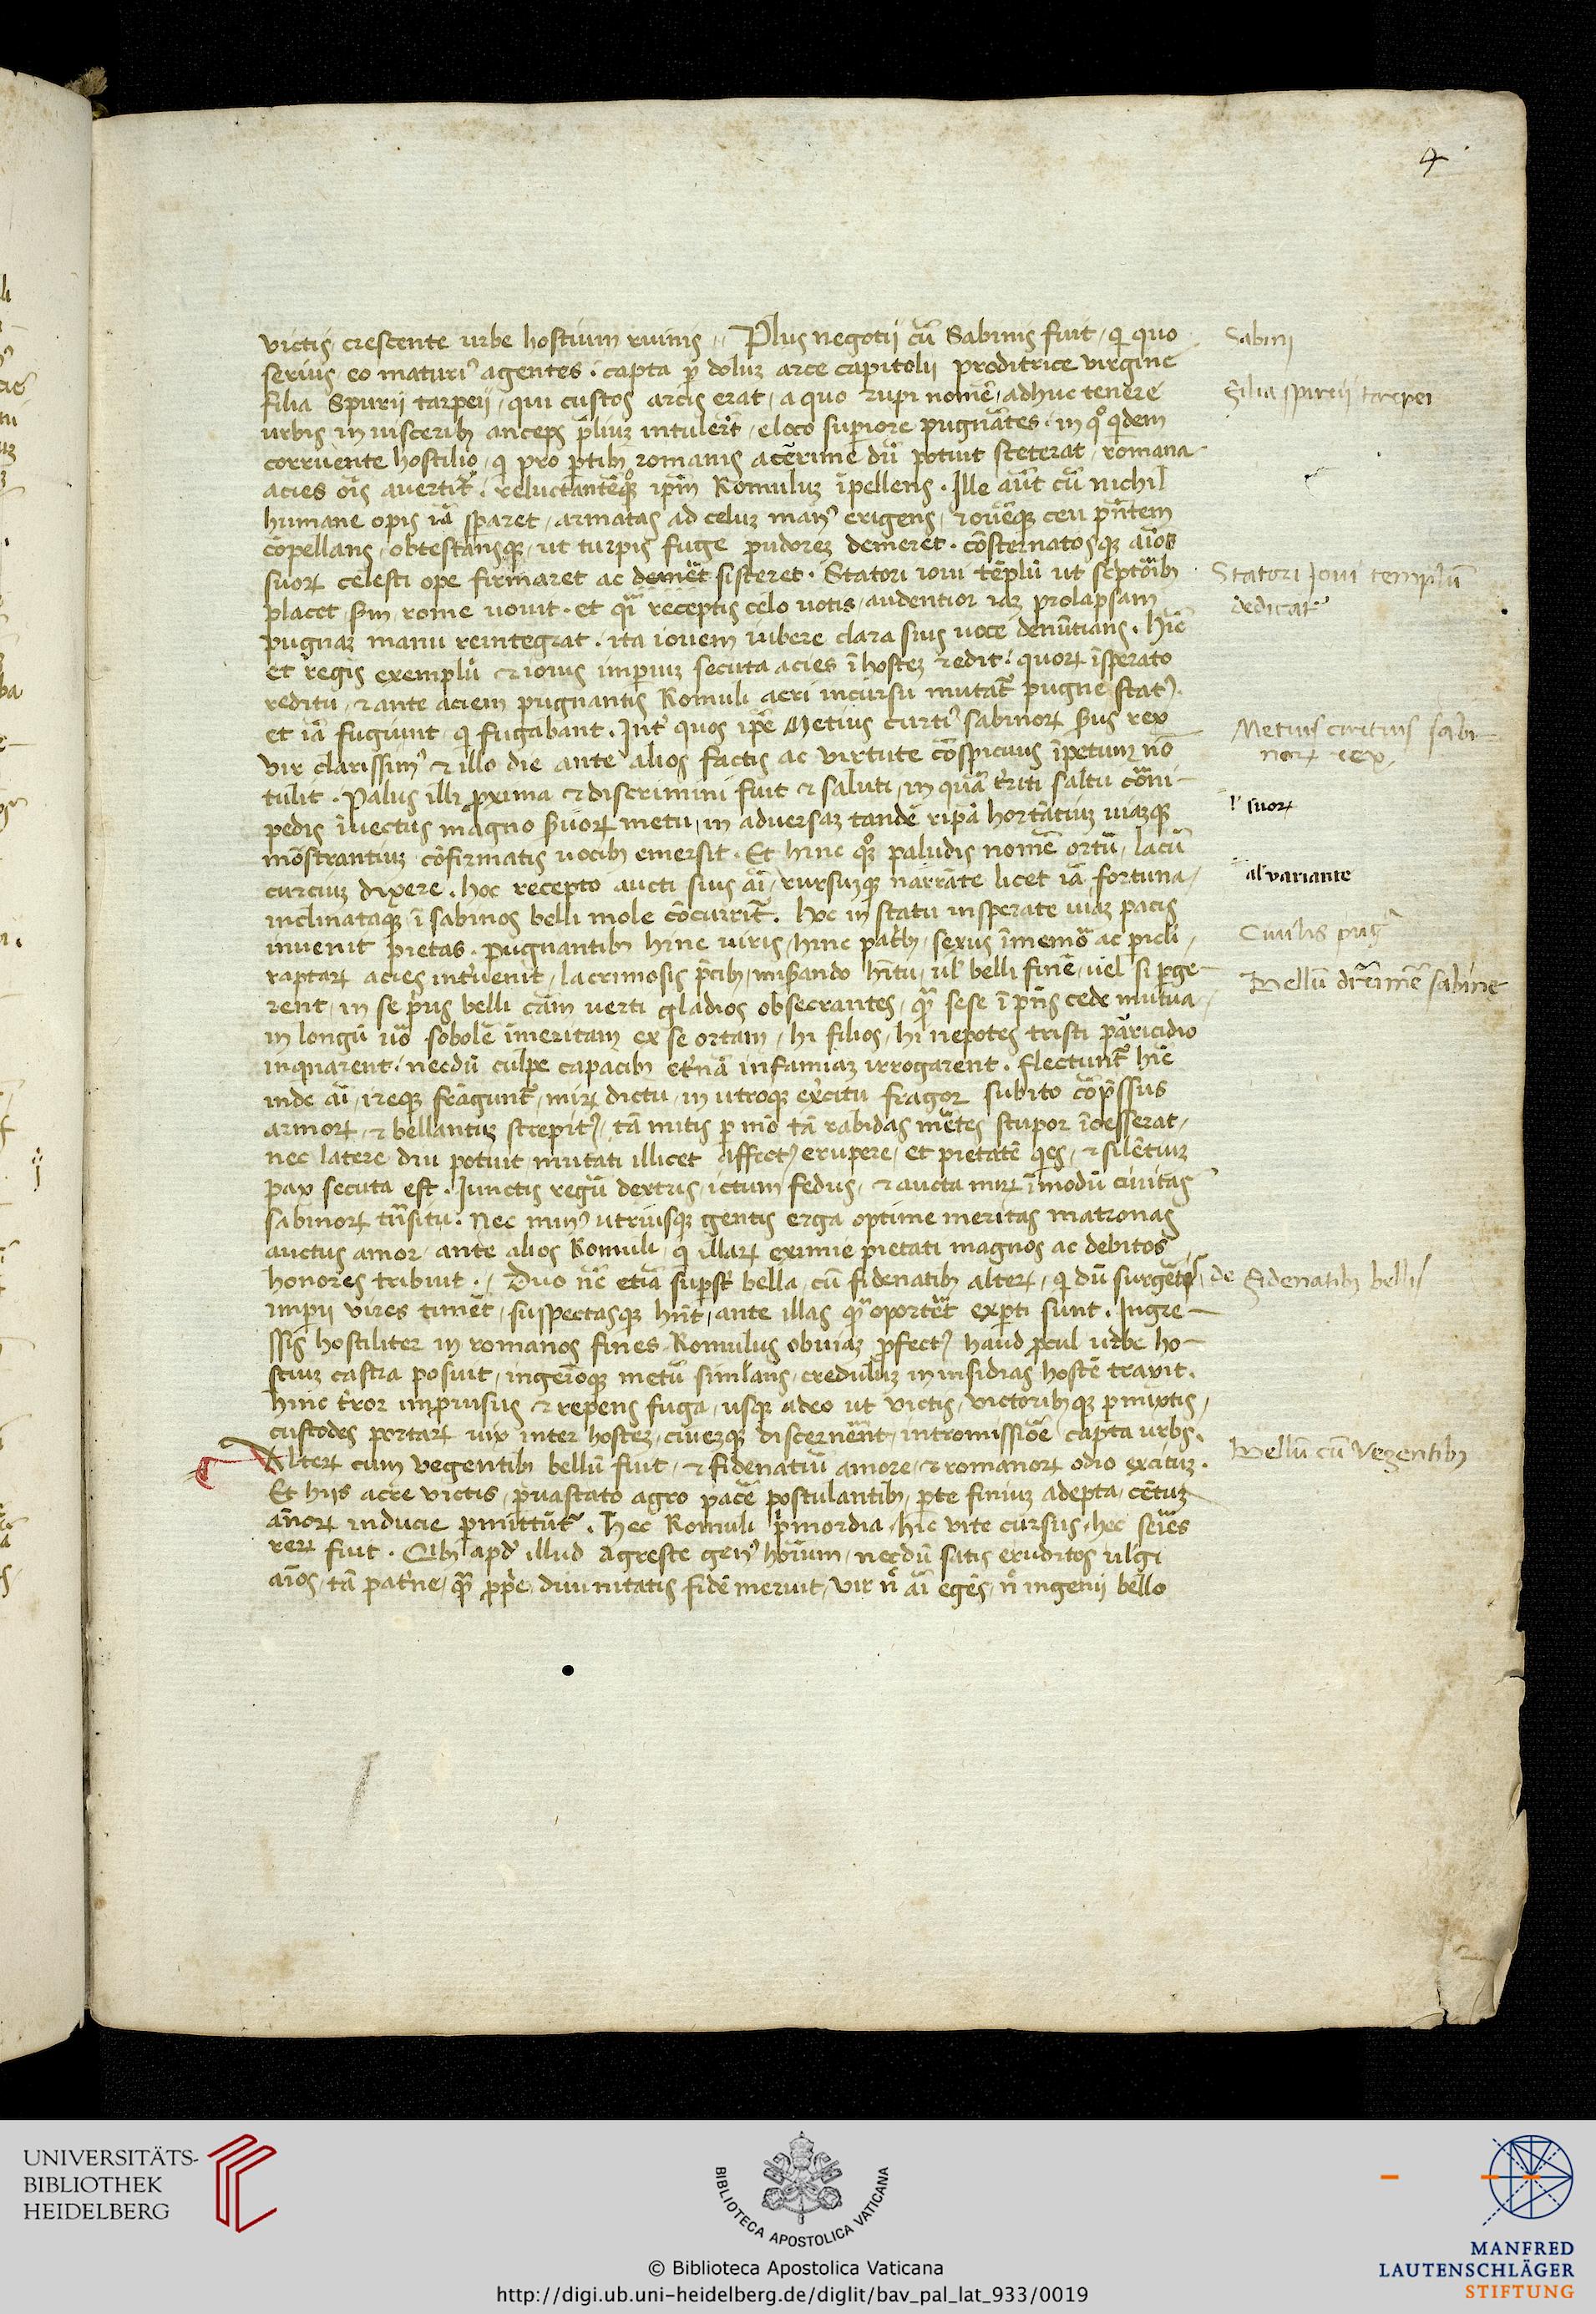 4
victis crescente urbe hostium ruinis // Plus negotij cũ Sabinis fuit / qi quo
serius eo maturiꝰ agentes . capta ꝑ doluȝ arce capitolij proditrice virgine
filia Spurij tarpeij / qui custos arcis erat / a quo rupi nomẽ / adhuc tenere
urbis in visceribꝫ anceps p̃liuȝ intulerũt / e loco superiore pugnãtes . in qͦ qͥdem
corruente hostilio / qi pro ꝑtibꝫ romanis acerime dũ potuit steterat / romana
acies oĩs avertitᷣ . reluctantẽqꝫ ip̃m Romuluȝ ĩpellens . Ille aũt cũ nichil
humane opis iã sparet / armatas ad celuȝ manꝰ erigens / iouẽqꝫ ceu p̃ntem
cõpellans / obtestansqꝫ / ut turpis fuge pudorẽ demeret . cõsternatosqꝫ aĩos
suoꝝ celesti ope firmaret ac demẽt sisteret . Statori ioui tẽplũ ut sc̃ptoribꝫ
placet / sũ rome vovit . et qi receptis celo votis / audentior iaȝ prolapsam
pugnaȝ manu reintegrat . ita iouem iubere clara suis voce denũtians . Hic̃
et regis exemplũ & iovis imperiuȝ secuta acies ĩ hosteȝ redit . quoꝝ ĩsperato
reditu / & ante aciem pugnantis Romuli acri incursu mutatᷣ pugne statꝰ .
et iã fugiunt qi fugabant . Intᷣ quos ip̃e Metius curtiꝰ sabinoꝝ rex
vir clarissimꝰ & illo die ante alios factis ac virtute cõspicuus ĩpetum nõ
tulit . Palus illi proxima & discrimini fuit & saluti / in quã tᷣriti saltu corni-
pedis ĩvectus magno suoꝝ metu / in adversaȝ tandẽ ripã hortãtiuȝ viaȝqꝫ
mõstrantiuȝ cõfirmatis vocibꝫ emersit . Et hinc qͦqꝫ paludis nomẽ ortũ / lacũ
curtiuȝ dixere . hoc recepto aucti suis aĩ / rursuȝqꝫ narrãte licet iã fortuna /
inclinataqꝫ ĩ sabinos belli mole cõcurritᷣ . hoc in statu insperate viaȝ pacis
invenit pietas . pugnantibꝫ hinc viris / hinc patᷣbꝫ / sexus ĩmemor ac pͥcli /
raptaꝝ acies intᷣvenit / lacrimosis p̃cibꝫ / miserando habitu / ul̃ belli finẽ / vel si perge-
rent / in se prius belli cãm verti gladios obsecrantes / qᷓ sese ĩ p̃ns cede mutua
in longũ vo sobolẽ ĩmeritam ex se ortam / hi filios / hi nepotes tristi parricidio
inqͥnarent . necdũ culpe capacibꝫ etᷣnã infamiaȝ irrogarent . flectuntᷣ hinc
inde aĩ / ireqꝫ frãguntᷣ / miꝝ dictu / in utroqꝫ exᷣcitu fragor subito cõp̃ssus
armoꝝ / & bellantiuȝ strepitꝰ / tã mitis ꝑ mõ tã rabidas mẽtes stupor ĩcesserat /
nec latere diu potuit / mutati illicet affectꝰ erupere / et pietatẽ qies / & silẽtiuȝ
pax secuta est . Iunctis regũ dextris / ictum fedus / & aucta miꝝ ĩ modũ civitas
sabinoꝝ trãsitu . Nec minꝰ utriusqꝫ gentis erga optime meritas matronas
auctus amor / ante alios Romuli / qi illaꝝ eximie pietati magnos ac debitos
honores tribuit . / Duo nc̃ etiã suꝑsũt bella / cũ fidenatibꝫ alteꝝ / qi dũ surgẽtis
imperii vires timẽt / suspectasqꝫ hñt / ante illas qᷓ oporteret experti sunt . Ingre-
ssis hostiliter in romanos fines Romulus obviaȝ profectꝰ haud procul urbe ho-
stiuȝ castra posuit / ingenioqꝫ metũ simulans / creduluȝ in insidias hostẽ traxit .
hinc tᷣror improvisus & repens fuga / usqꝫ adeo ut victis / victoribꝫqꝫ ꝑmixtis /
custodes portaꝝ vix inter hosteȝ / civeȝqꝫ discernerent / intromissiõe capta urbs .
Alteꝝ cum vegentibꝫ bellũ fuit / & fidenatiũ amore / & romanoꝝ odio excituȝ .
Et hijs acre victis / pervastato agro pacẽ postulantibꝫ / parte finiuȝ adepta / cẽtuȝ
ãnoꝝ inducie ꝑmittũtᷣ . Hec Romuli pͥmordia / hic vite cursus / hec series
reꝝ fuit . Qibꝫ apd illud agreste genꝰ hoĩum / necdũ satis eruditos vlgi
aĩos / tã patᷣne / qᷓ propͥe divinitatis fidẽ meruit / vir nͦ aĩ egẽs / nͦ ingenij bello
Sabinj
Filia spurij tarpei
Statori Joui templũ
dedicatᷣ
Metius curtius sabi-
noꝝ rex
l' suoꝝ
al' variante
Civilis pug
Bellũ dirimẽte sabine
de Fidenatibꝫ bellũ
Bellũ cũ Vegentibꝫ
UNIVERSITÄTS-
BIBLIOTHEK
HEIDELBERG
BIBLIOTECA APOSTOLICA VATICANA
© Biblioteca Apostolica Vaticana
http://digi.ub.uni-heidelberg.de/diglit/bav_pal_lat_933/0019
MANFRED
LAUTENSCHLÄGER
STIFTUNG